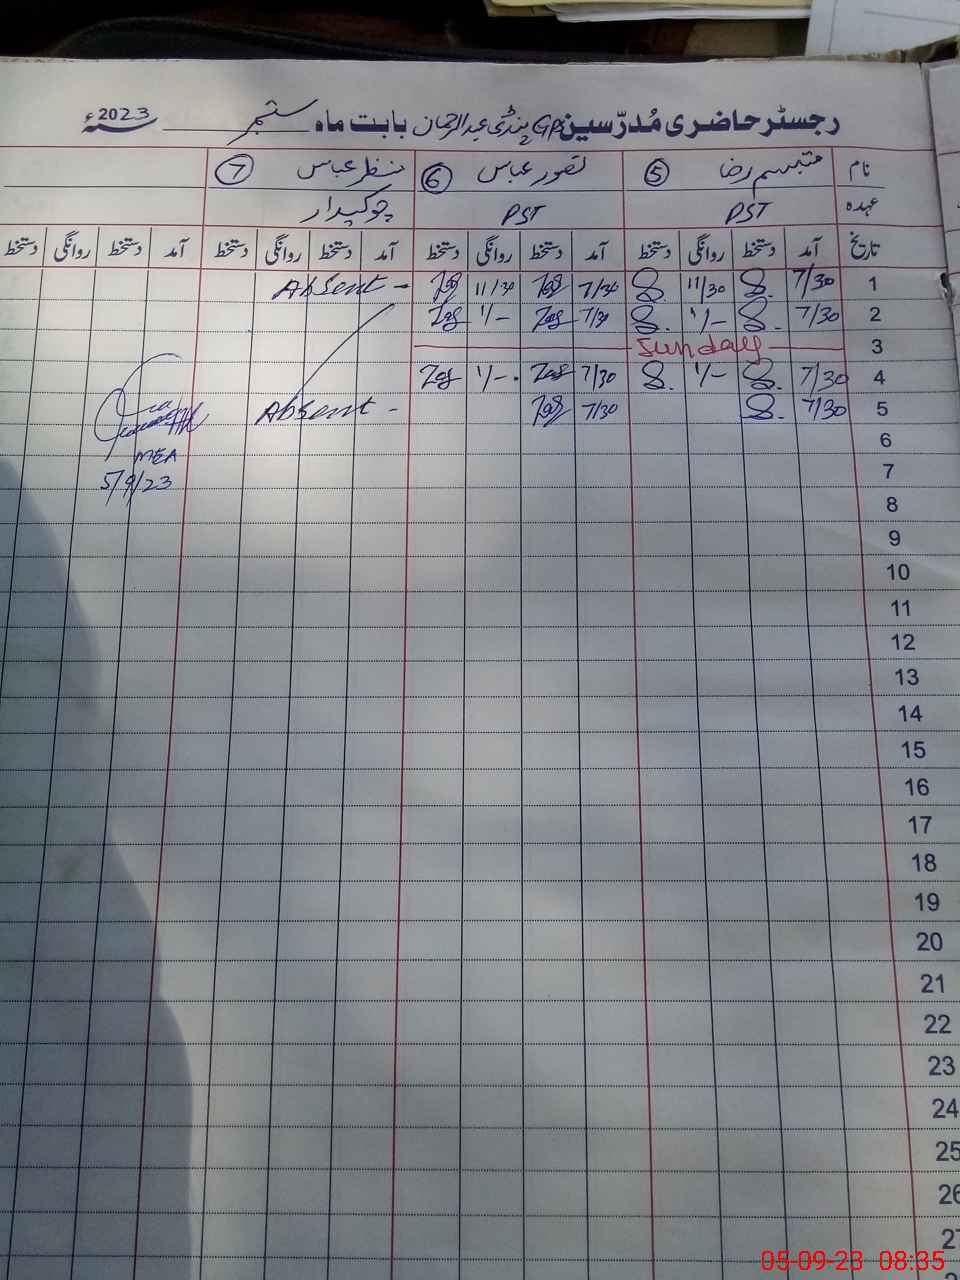 رجسٹر حاضری مُدرّسین GPS پنڈی عبدالرحمان بابت ماہ ستمبر سنہ 2023ء
نام متبسم رضا ⑤ تصور عباس ⑥ منظر عباس ⑦
عہدہ PST PST چوکیدار
تاریخ آمد دستخط روانگی دستخط آمد دستخط روانگی دستخط آمد دستخط روانگی دستخط آمد دستخط روانگی دستخط
1 7/30 11/30 7/30 11/30 Absent -
2 7/30 1/- 7/30 1/-
3 Sunday
4 7/30 1/- 7/30 1/-
5 7/30 7/30 Absent -
6
MEA
7
5/9/23
8
9
10
11
12
13
14
15
16
17
18
19
20
21
22
23
24
25
26
27
05-09-23 08:35